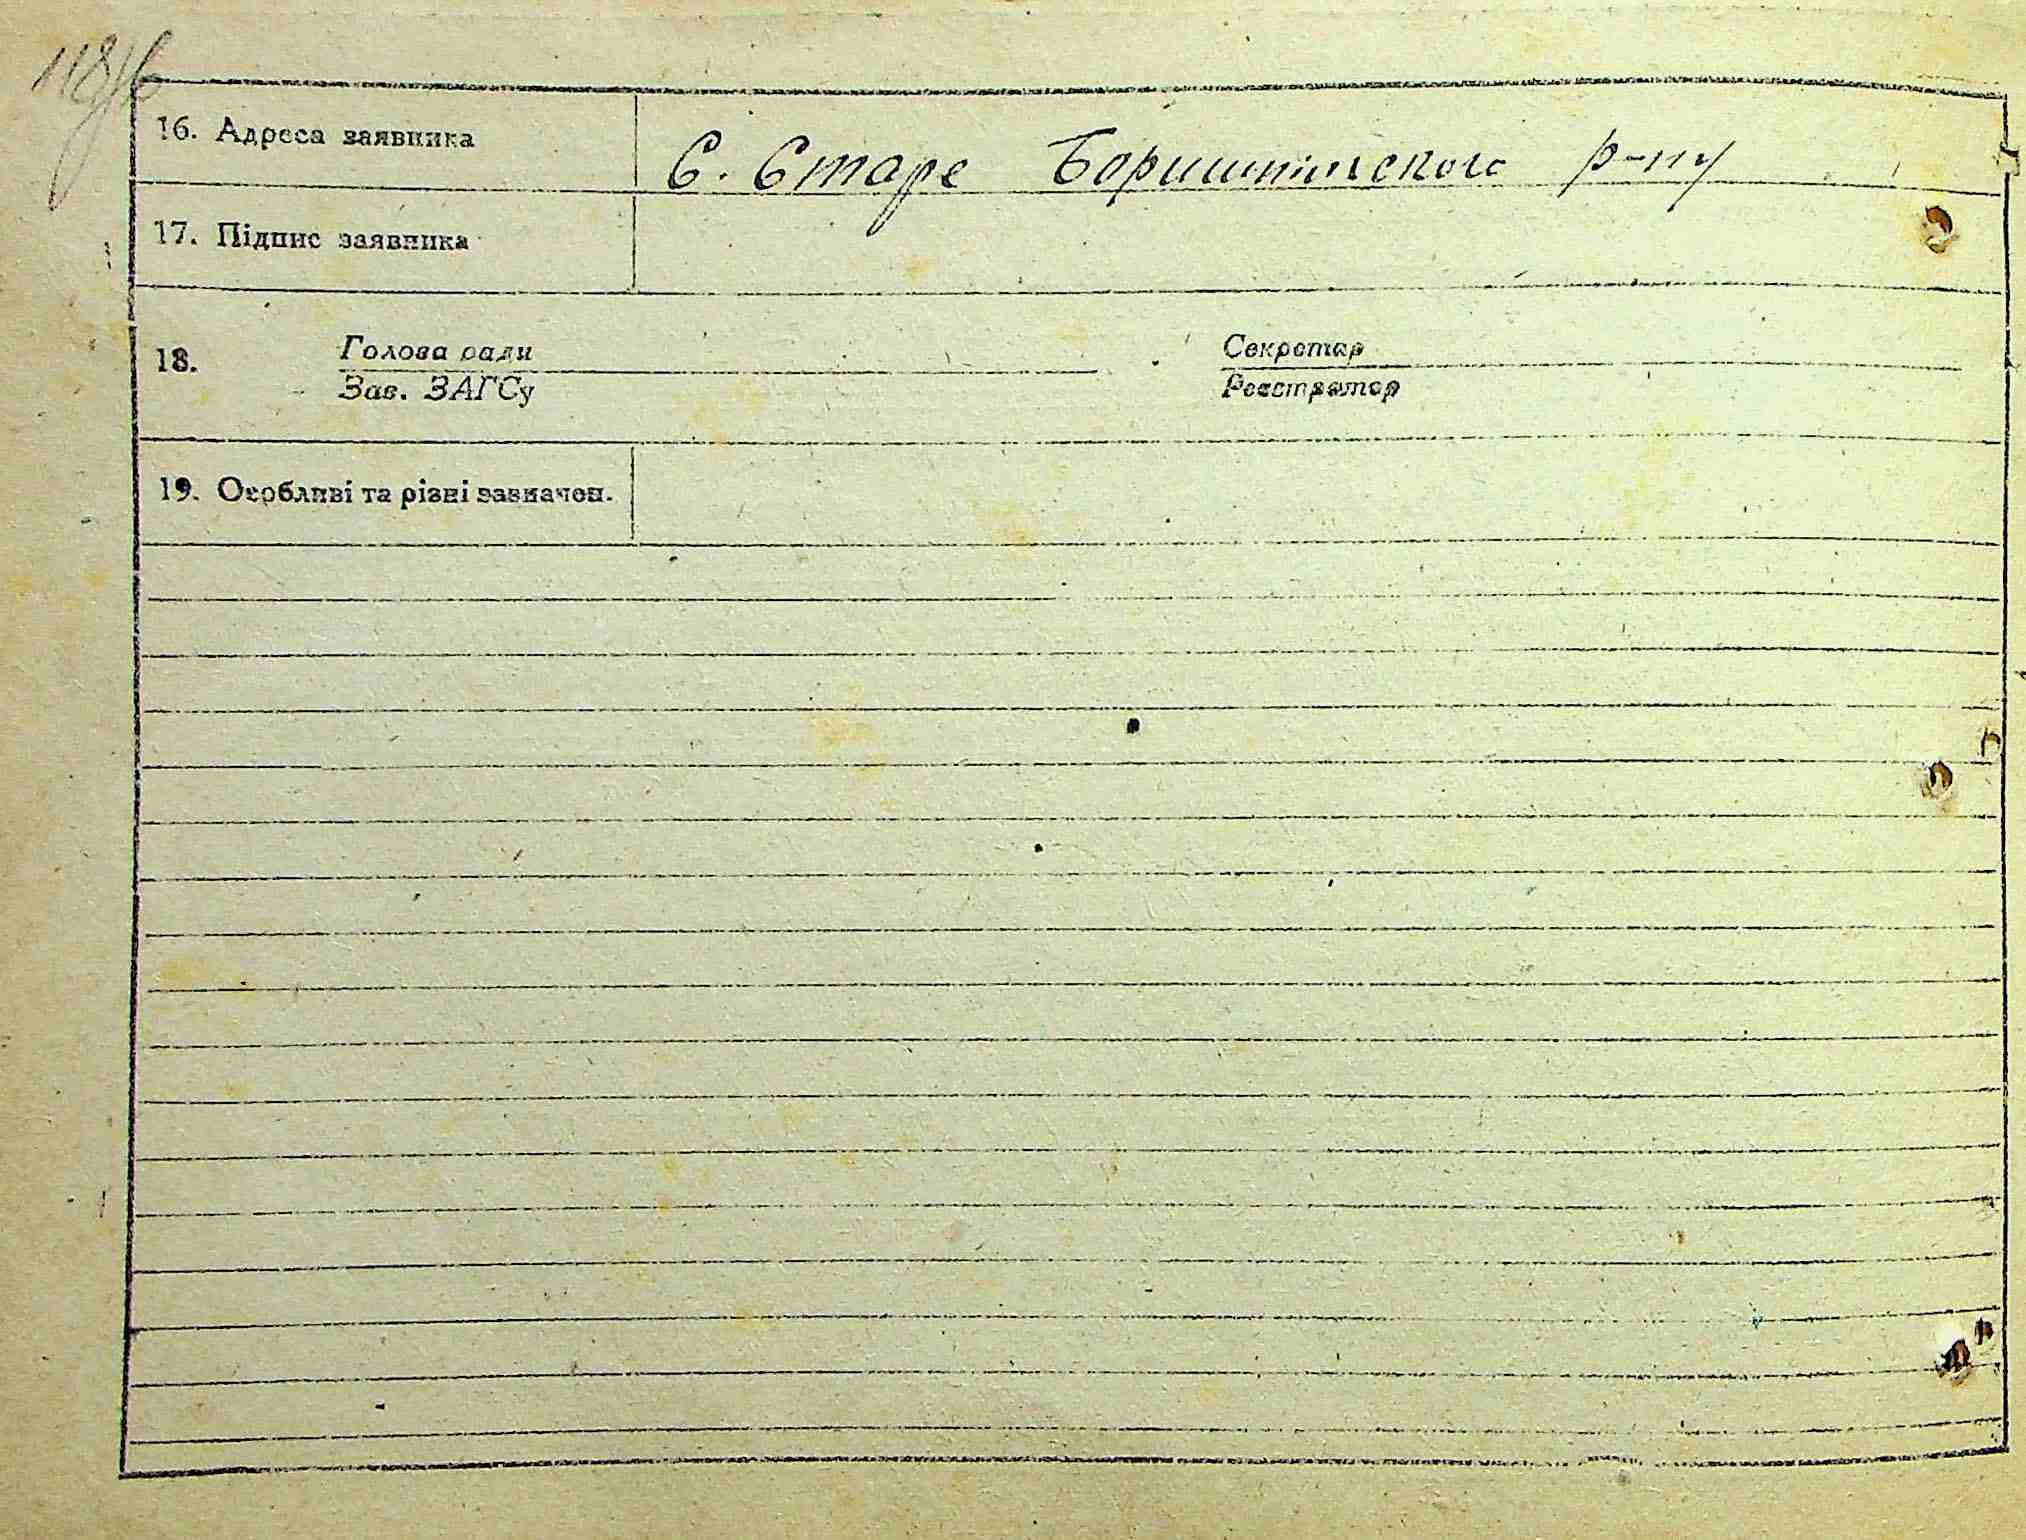 16. Адреса заявника
С. Старе Боришпільского р-ну
17. Підпис заявника
18.
Голова ради
Зав. ЗАГСу
Секретар
Реєстратор
19. Особливі та різні зазначен.